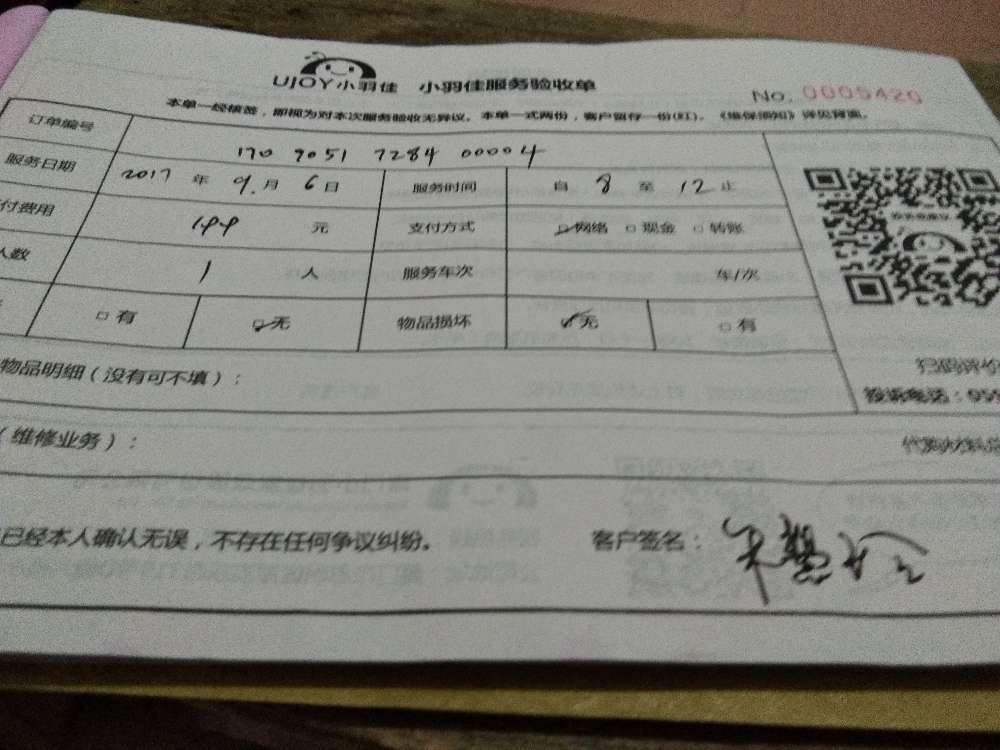 UJOY小羽佳 小羽佳服务验收单
No. 0005420
本单一经核签，即视为对本次服务验收无异议。本单一式两份，客户留存一份(红)。《维保须知》详见背面。
订单编号 170 9051 7284 00004
服务日期 2017 年 9 月 6 日 服务时间 自 8 至 12 止
付费用 144 元 支付方式 ☑网络 □现金 □转账
人数 1 人 服务车次 车/次
□有 ☑无 物品损坏 ☑无 □有
扫码评价
物品明细（没有可不填）：
投诉电话：
（维修业务）：
已经本人确认无误，不存在任何争议纠纷。 客户签名：